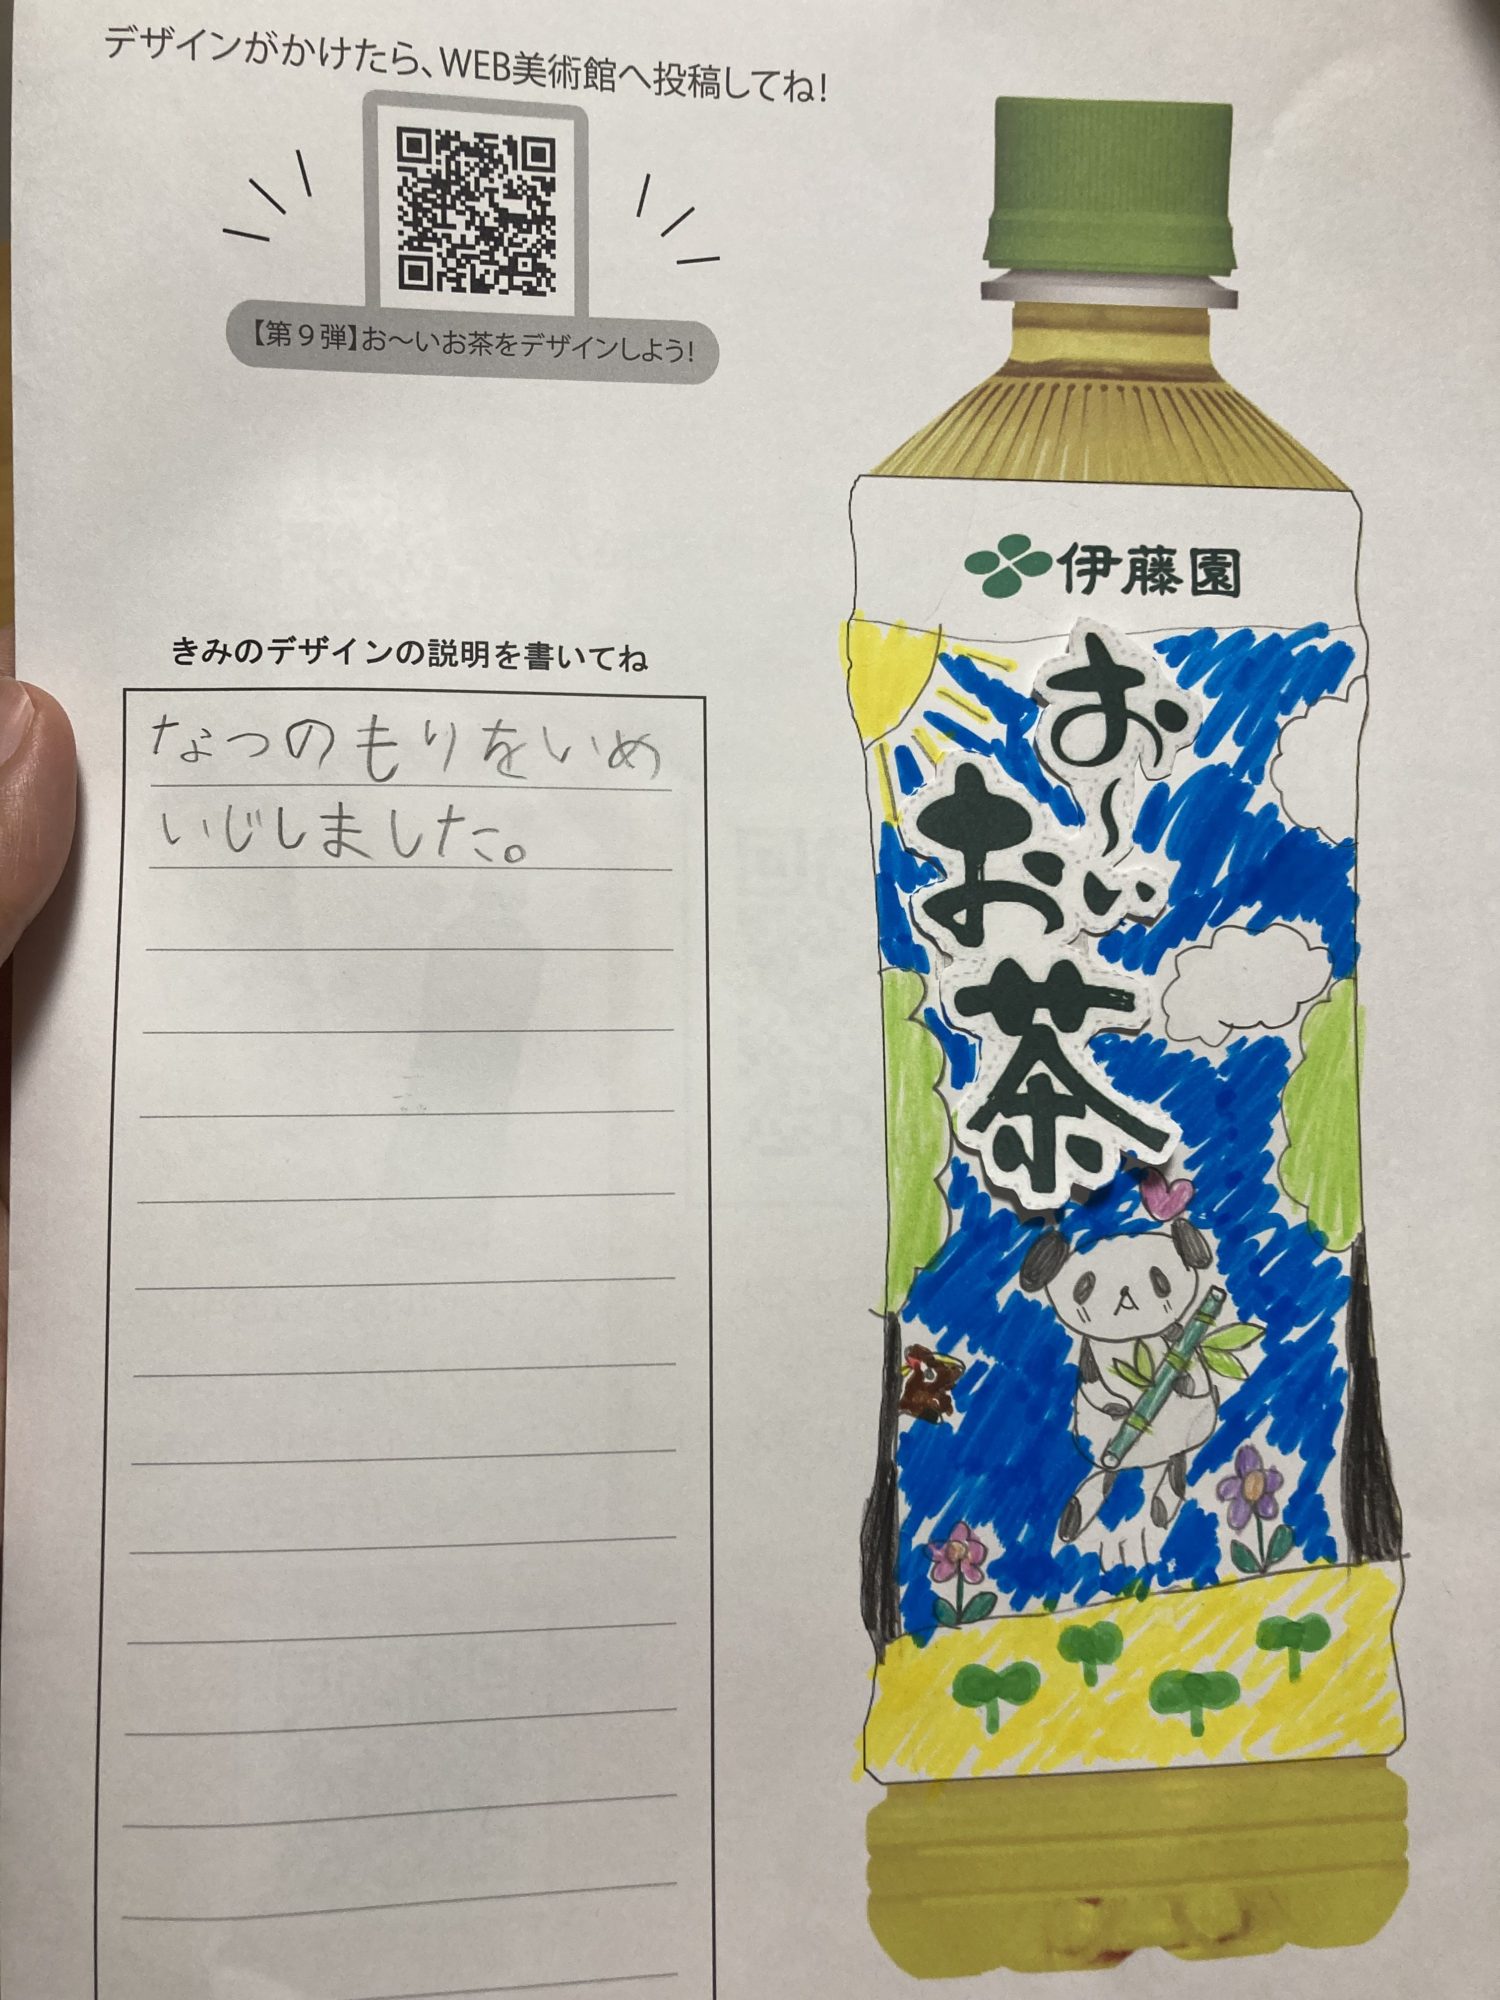 デザインがかけたら、WEB美術館へ投稿してね!
【第9弾】お〜いお茶をデザインしよう!
きみのデザインの説明を書いてね
なつのもりをいめ
いじしました。
伊藤園
お〜い
お茶